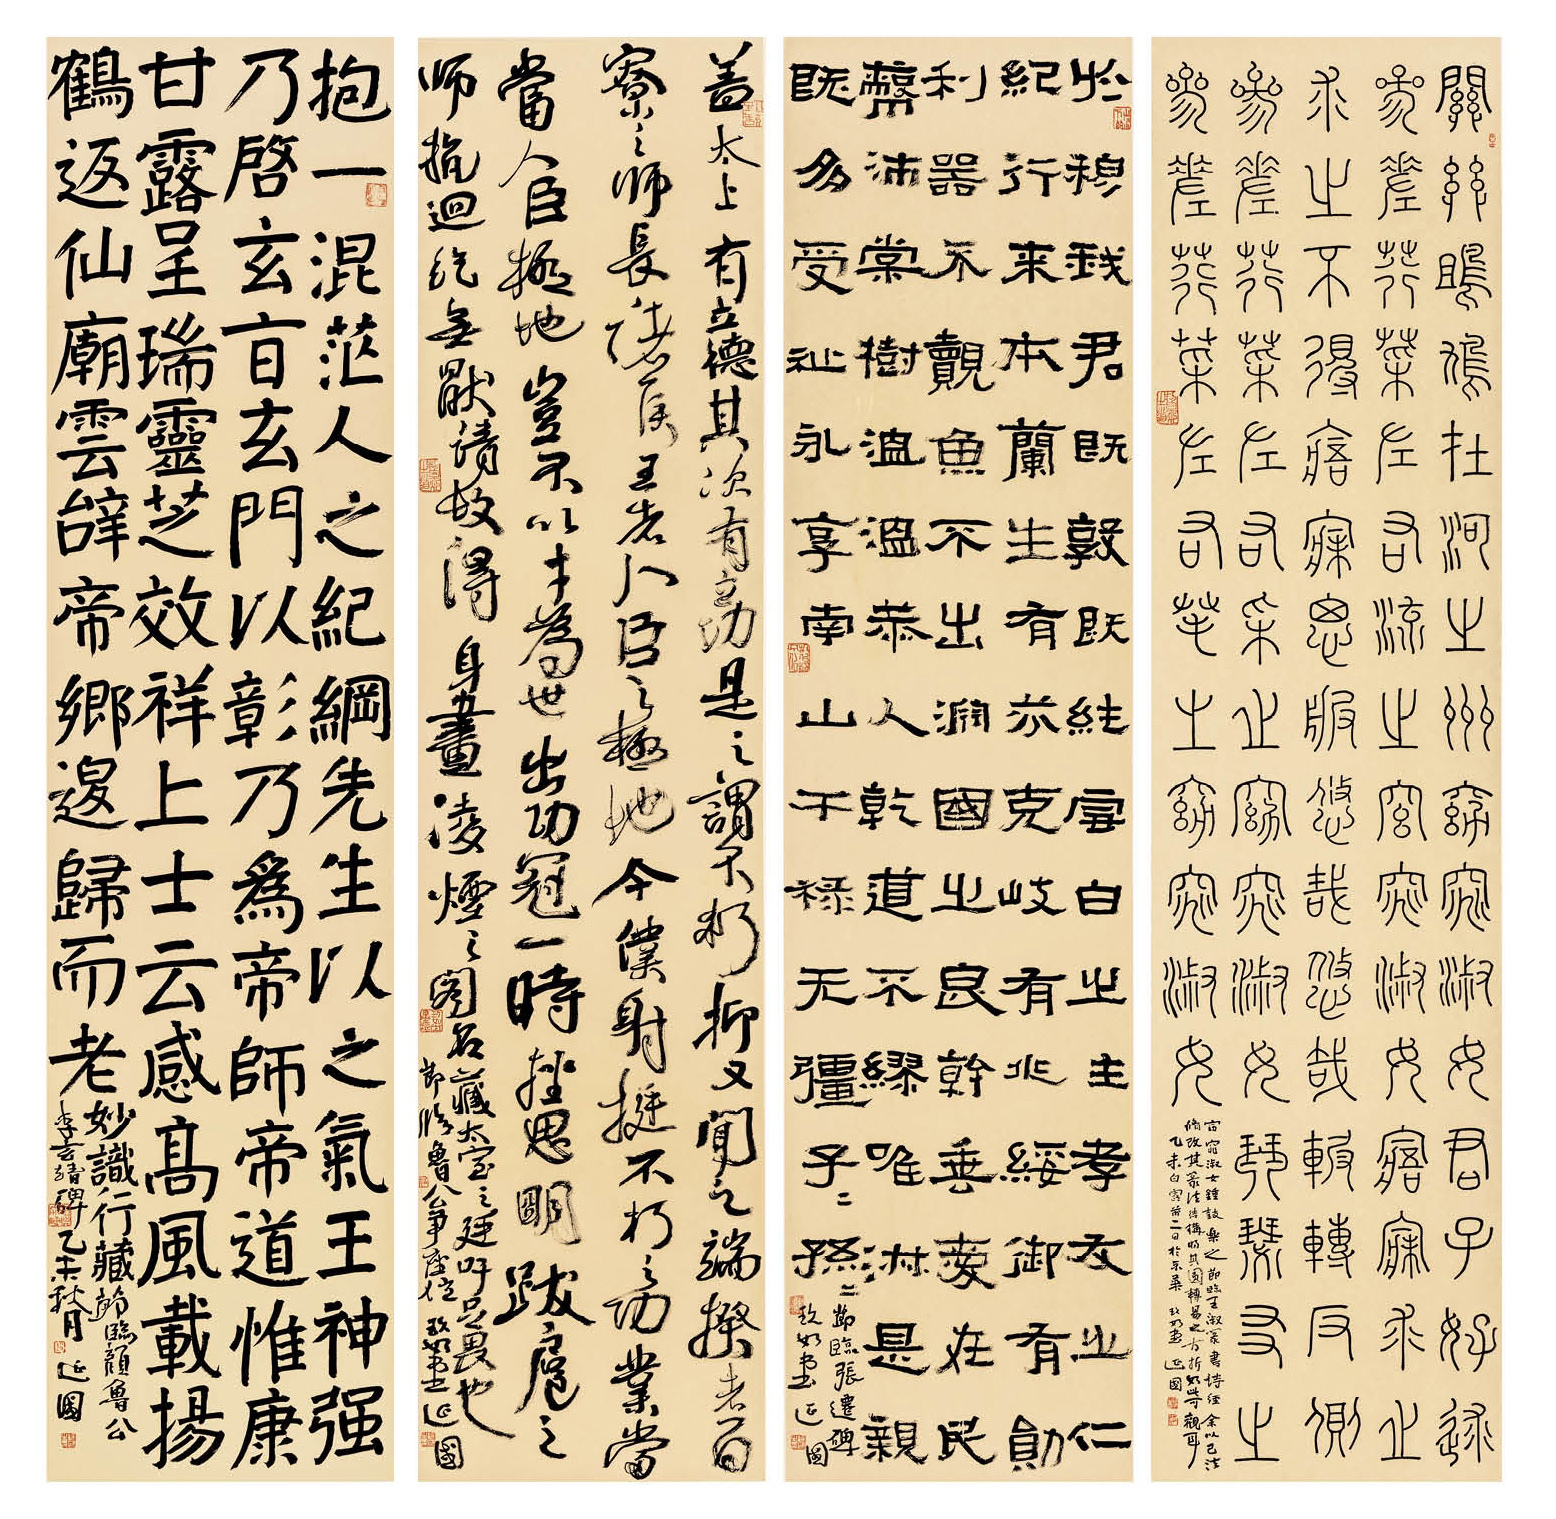 關關雎鳩在河之州窈窕淑女君子好逑
參差荇菜左右流之窈窕淑女寤寐求之
求之不得寤寐思服悠哉悠哉輾轉反側
參差荇菜左右采之窈窕淑女琴瑟友之
參差荇菜左右芼之窈窕淑女
窈淑女鐘鼓樂之 節臨王淑篆書詩經 余以己法
改其篆法結構明其圓轉易之方折如此可觀耳
乙未白露前二日於京華 延國
於穆我君既敦既純雪白之性孝友之仁
紀行來本蘭生有芬克岐有兆綏御有勛
利器不覿魚不出淵國之良幹垂愛在民
蔽沛棠樹溫溫恭人乾道不繆唯淑是親
既多受祉永享南山干祿无疆子=孫=
節臨張遷碑
延國
蓋太上有立德其次有立功是之謂不朽抑又聞之端揆者百
寮之師長諸侯王者人臣之極地今僕射挺不朽之功業當
當人臣極地豈不以才為世出功冠一時挫思明跋扈之
師抗迴紇無猒請故得身畫凌煙之閣名藏太室之廷吁足畏也
節臨魯公爭座位 延國
抱一混茫人之紀綱先生以之氣王神强
乃啓玄旨玄門以彰乃爲帝師帝道惟康
甘露呈瑞靈芝效祥上士云感高風載揚
鶴返仙廟雲辭帝鄉邈歸而老
妙識行藏節臨顏魯公
李玄靖碑 乙未秋月 延國